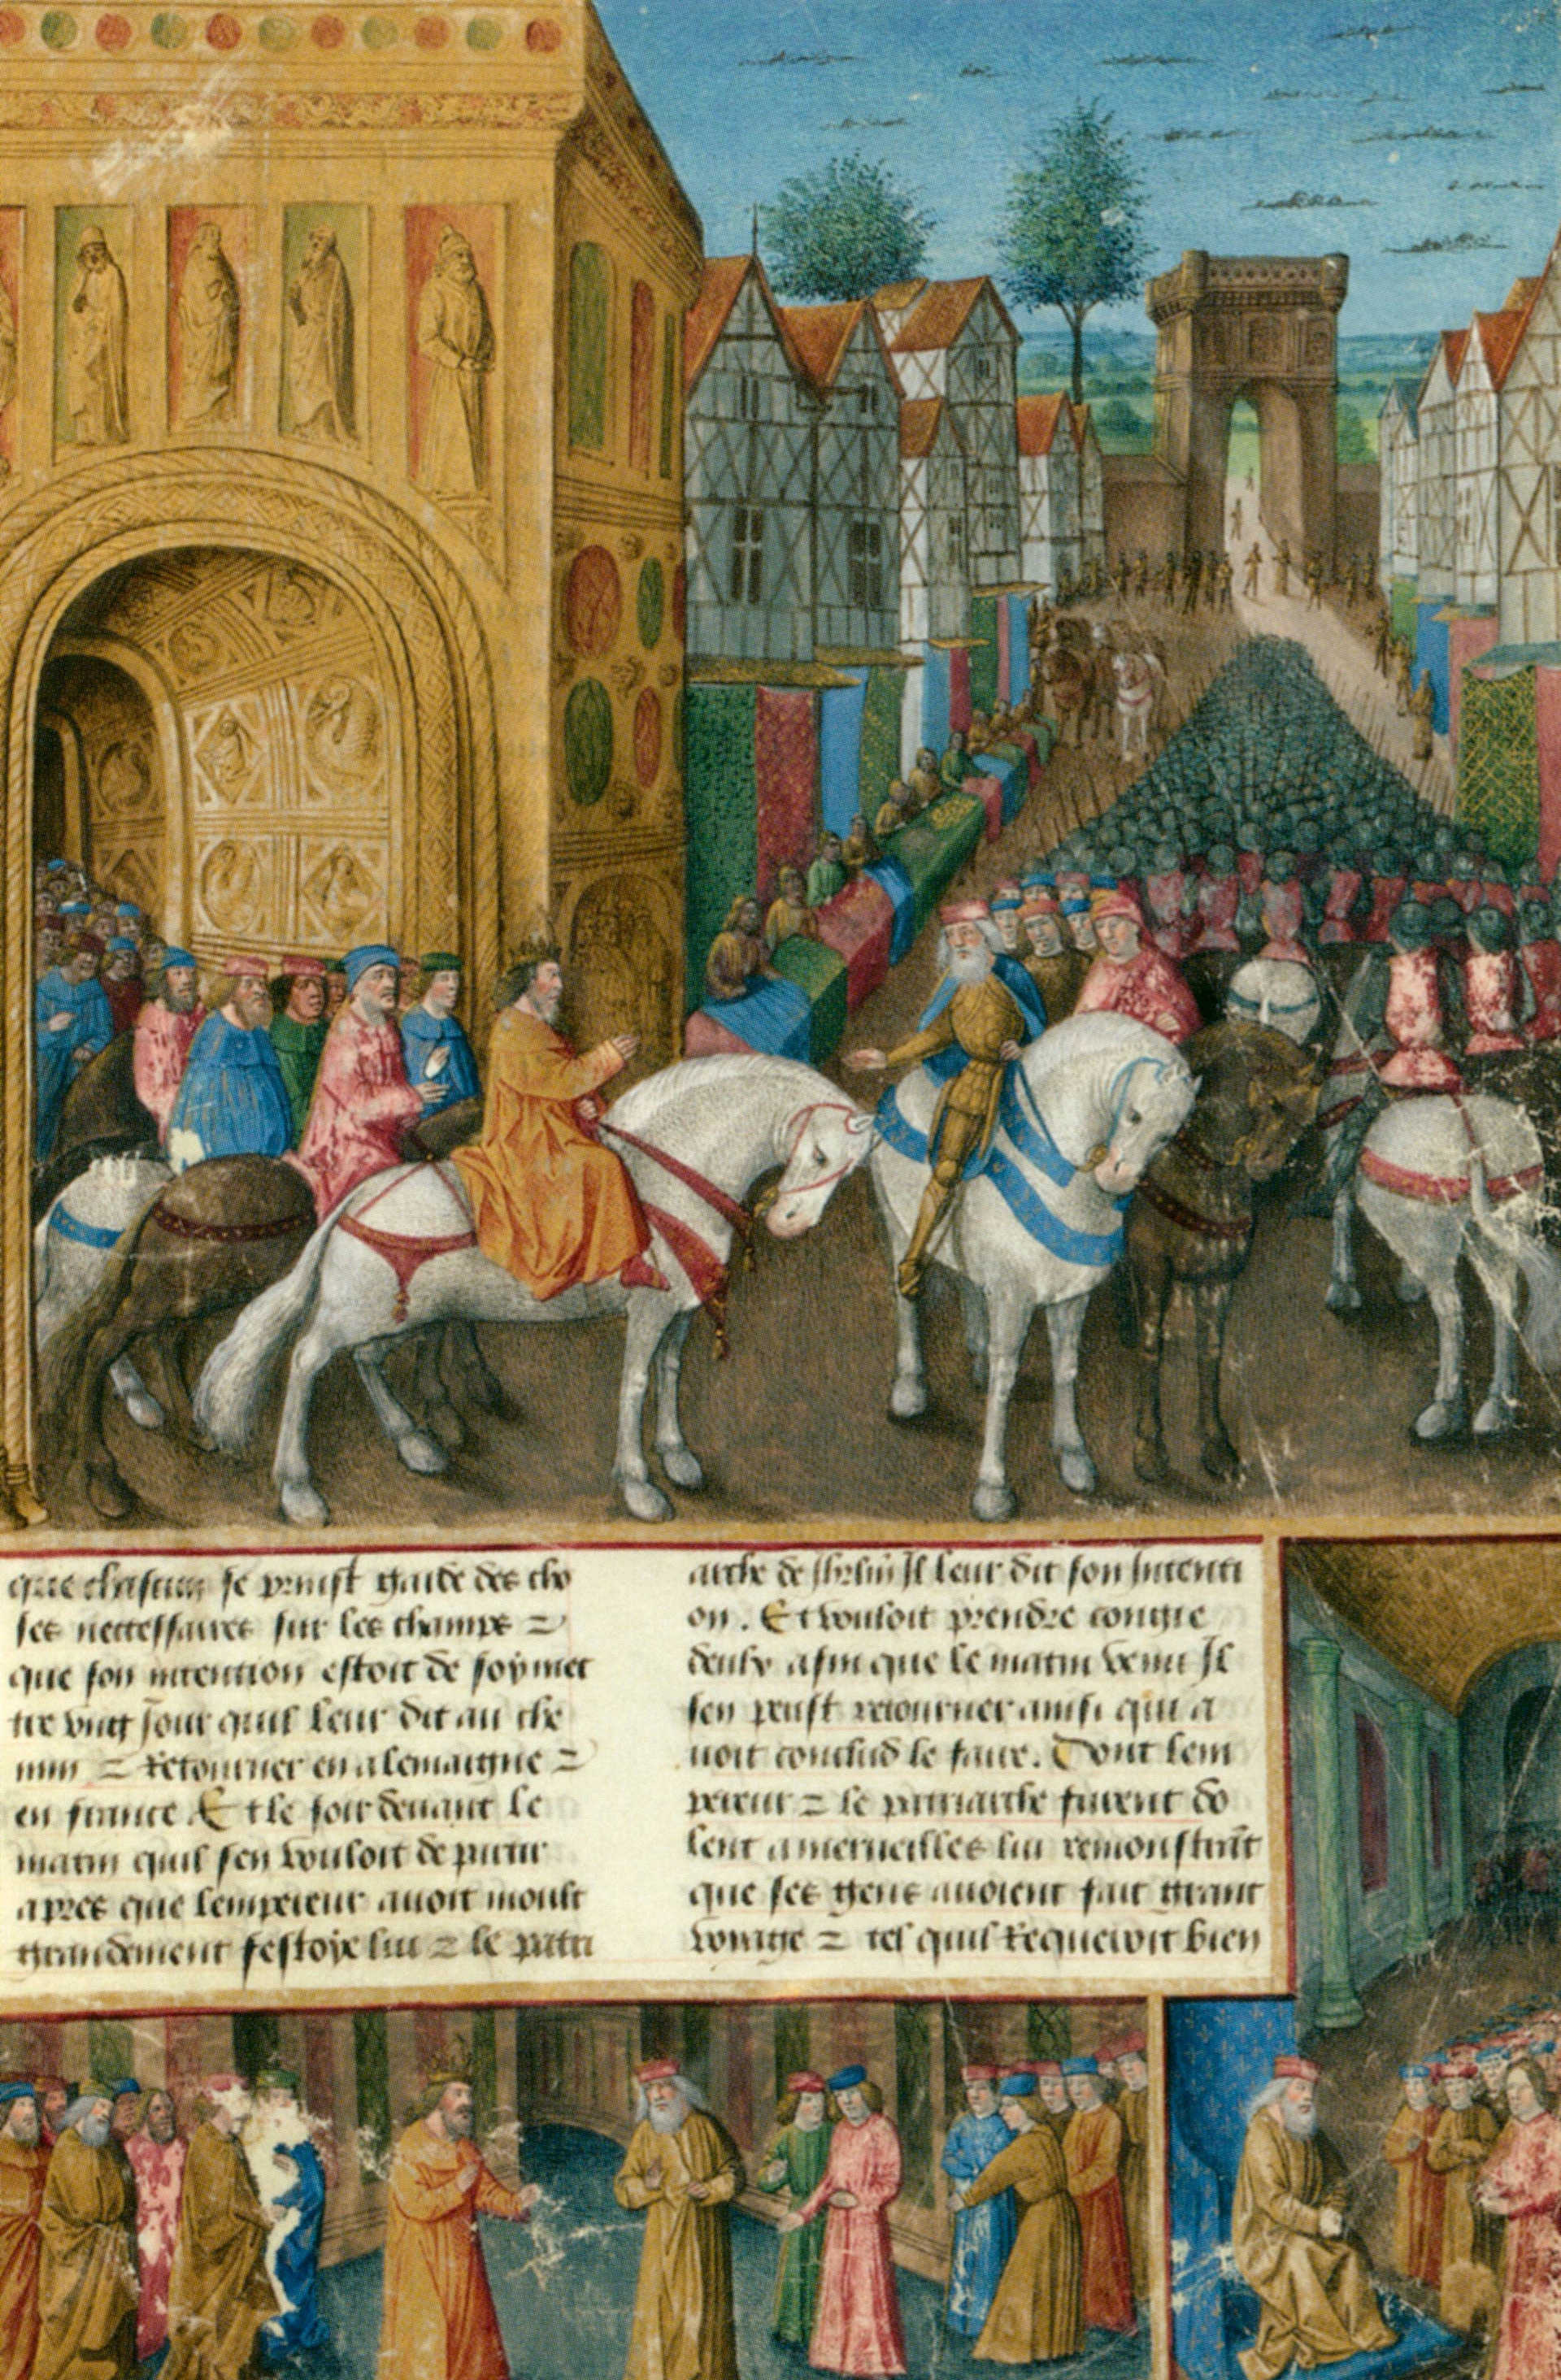 que chascun se prinst garde des cho
ses neccessaires sur les champs =
que son intention estoit de soy met
tre vingt Jour quil leur dit au che
min = Retourner en alemaigne =
en france. Et le soir deuant le
matin quil sen vouloit de partir
apres que lempereur auoit moult
grandement festoye lui = le patri
arche de Jhrlm Il leur dit son Intenti
on. Et vouloit prendre congie
deulx afin que le matin venu Il
sen peust retourner ainsi qui a
uoit conclud le faire. Dont lem
pereur = le patriarche furent do
lent a merueilles lui remonstrãt
que ses gens auoient fait grant
voyage = tel quil Requeroit bien